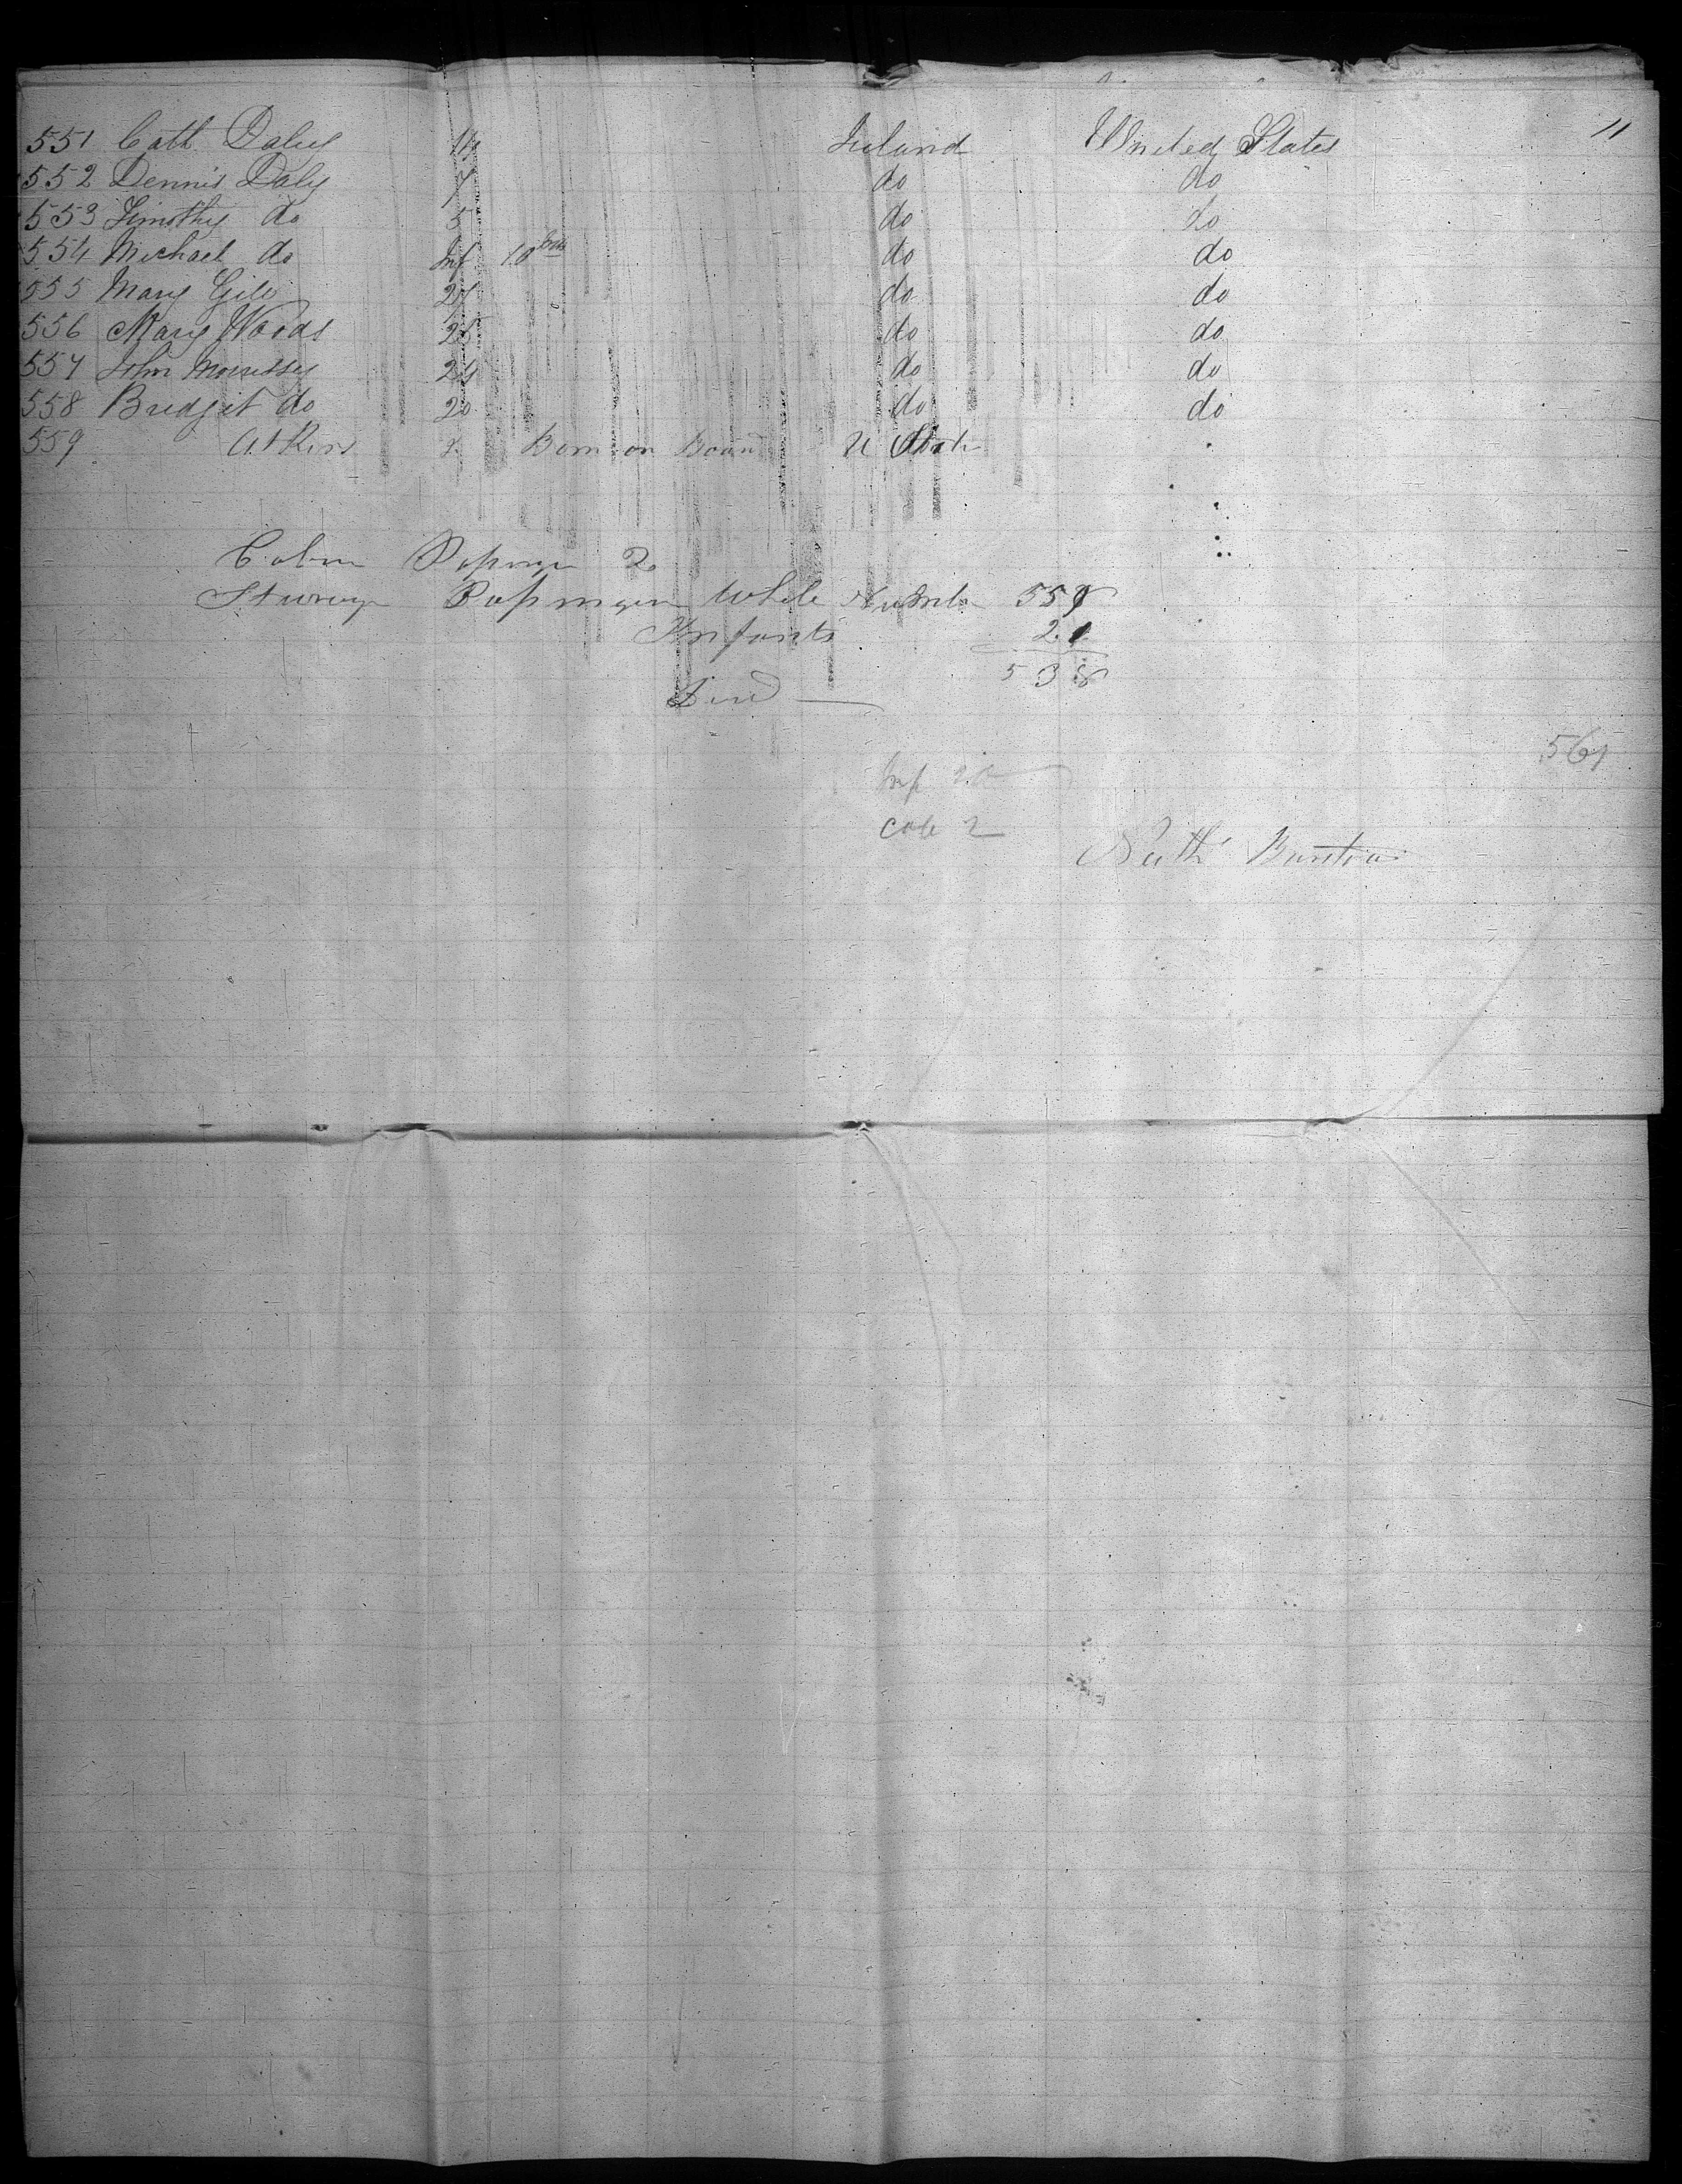 11
551 Cath Daley 14 Ireland United States
552 Dennis Daly 7 do do
553 Timothy do 5 do do
554 Michael do Inf 10 do do
555 Mary Gill 27 do do
556 Mary Woods 25 do do
557 John Morrissey 24 do do
558 Bridgit do 20 do do
559 Atkins Born on Board U State
Cabin 2
Steerage Passengers Whole Number 559
Infants 21
538
561
Inf 20
Cab 2